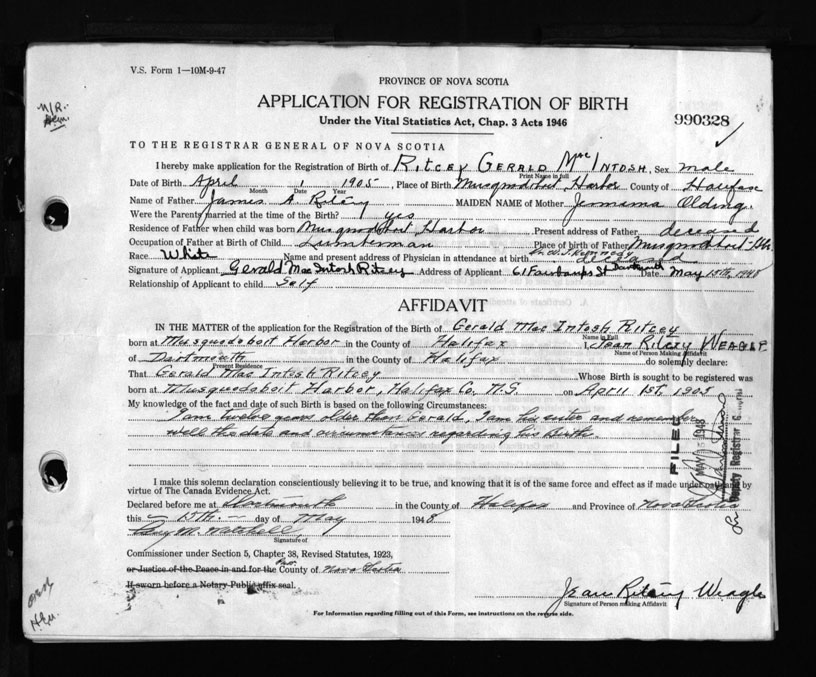 V.S. Form 1—10M-9-47
N/R.
PROVINCE OF NOVA SCOTIA
APPLICATION FOR REGISTRATION OF BIRTH
Under the Vital Statistics Act, Chap. 3 Acts 1946
990328
TO THE REGISTRAR GENERAL OF NOVA SCOTIA
I hereby make application for the Registration of Birth of RITCEY GERALD MacINTOSH, Sex male
Print Name in full
Date of Birth April 1 1905, Place of Birth Musquodoboit Harbor County of Halifax
Month Date Year
Name of Father James A. Ritcey MAIDEN NAME of Mother Jemima Olding
Were the Parents married at the time of the Birth? yes
Residence of Father when child was born Musquodoboit Harbor Present address of Father deceased
Occupation of Father at Birth of Child Lumberman Place of birth of Father Musquodoboit Hbr.
Race White Name and present address of Physician in attendance at birth Kennedy deceased
Signature of Applicant Gerald MacIntosh Ritcey Address of Applicant 61 Fairbanks St Dartmouth Date May 15th, 1948
Relationship of Applicant to child Self
AFFIDAVIT
IN THE MATTER of the application for the Registration of Birth of Gerald MacIntosh Ritcey
Name in Full
born at Musquodoboit Harbor in the County of Halifax I, Jean Ritcey Weagle
Name of Person Making Affidavit
of Dartmouth in the County of Halifax do solemnly declare:
Present Residence
That Gerald MacIntosh Ritcey Whose Birth is sought to be registered was
born at Musquodoboit Harbor, Halifax Co, N.S. on April 1st, 1905
My knowledge of the fact and date of such Birth is based on the following Circumstances:
I am twelve years older than Gerald, I am his sister and remember
well the date and circumstances regarding his Birth.
FILED
MAY 1948
Deputy Registrar General
I make this solemn declaration conscientiously believing it to be true, and knowing that it is of the same force and effect as if made under oath and by
virtue of The Canada Evidence Act.
Declared before me at Dartmouth in the County of Halifax and Province of Nova Scotia
this 15th day of May 1948
Mitchell
Signature of
Commissioner under Section 5, Chapter 38, Revised Statutes, 1923,
or Justice of the Peace in and for the County of Nova Scotia
If sworn before a Notary Public affix seal.
Jean Ritcey Weagle
Signature of Person making Affidavit
For Information regarding filling out of this Form, see instructions on the reverse side.